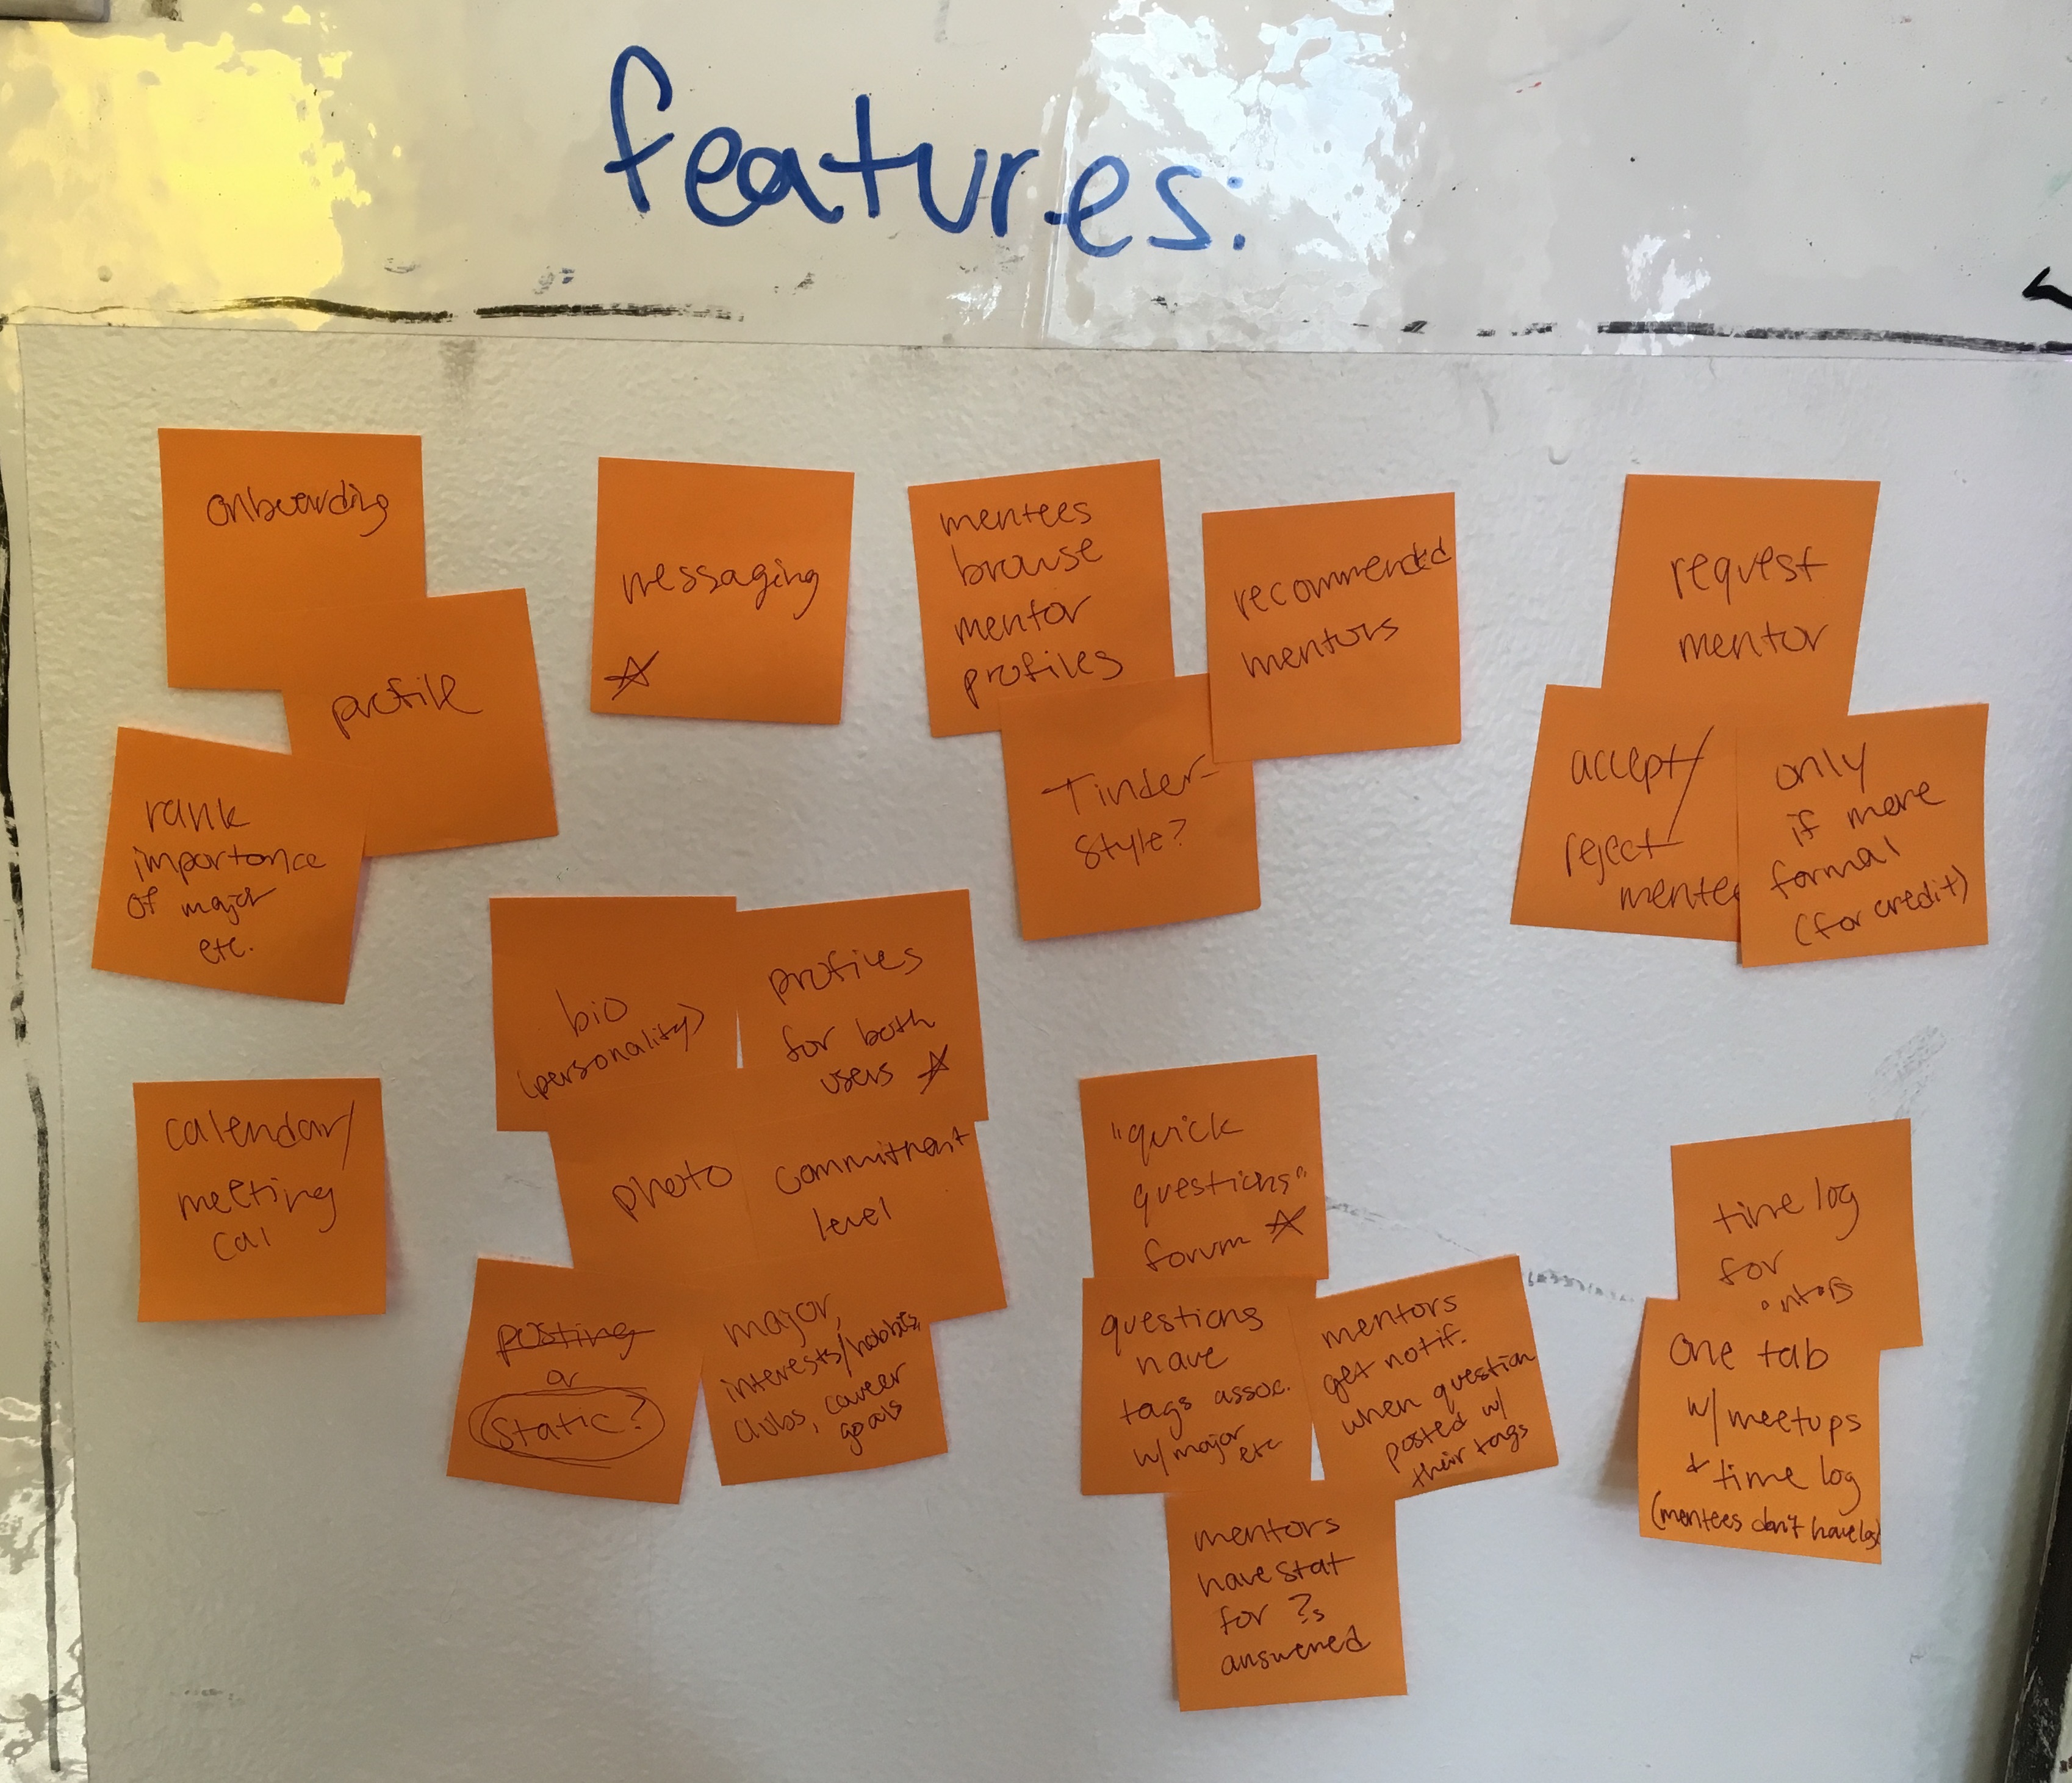 features:
onboarding
profile
rank
importance
of major
etc.
messaging
mentees
browse
mentor
profiles
recommended
mentors
Tinder-
style?
request
mentor
accept/
reject
mentee
only
if more
formal
(for credit)
calendar/
meeting
cal
bio
(personality)
profiles
for both
users
photo
commitment
level
posting
or
static?
major,
interests/hobbies,
clubs, career
goals
"quick
questions"
forum
questions
have
tags assoc.
w/ major
etc
mentors
get notif.
when question
posted w/
their tags
mentors
have stat
for ?s
answered
time log
for
one tab
w/ meetups
+ time log
(mentees don't have log)